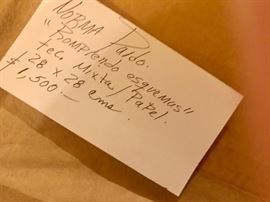 NORMA Pardo.
"Rompiendo esquemas"
Tec. Mixta / Papel.
28 x 28 cms.
$ 1,500.—